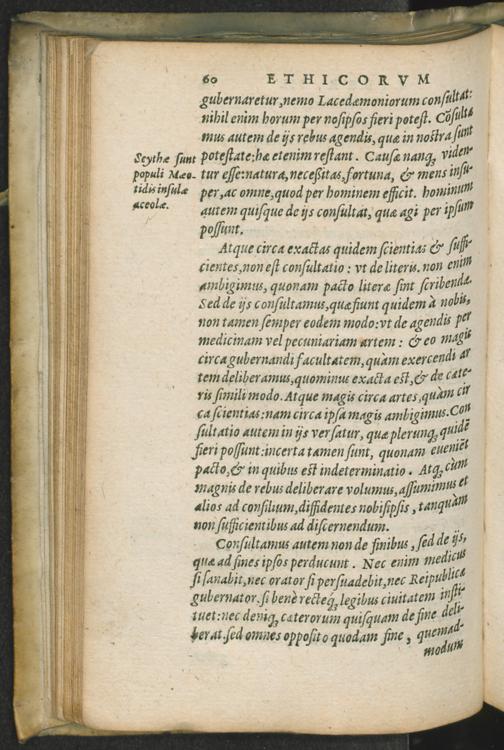 60 ETHICORVM
gubernaretur, nemo Lacedæmoniorum consultat:
nihil enim horum per nosipsos fieri potest. Cõsulta
mus autem de ijs rebus agendis, quæ in nostra sunt
potestate: hæ etenim restant. Causæ nanq, viden-
tur esse: natura, necessitas, fortuna, & mens insu-
per, ac omne, quod per hominem efficit. hominum
autem quisque de ijs consultat, quæ agi per ipsum
possunt.
Scythæ sunt
populi Mæo-
tidis insulæ
accolæ.
Atque circa exactas quidem scientias & suffi-
cientes, non est consultatio: vt de literis. non enim
ambigimus, quonam pacto literæ sint scribendæ.
Sed de ijs consultamus, quæ fiunt quidem à nobis,
non tamen semper eodem modo: vt de agendis per
medicinam vel pecuniariam artem: & eo magis
circa gubernandi facultatem, quàm exercendi ar
tem deliberamus, quominus exacta est, & de cæte-
ris simili modo. Atque magis circa artes, quàm cir
ca scientias: nam circa ipsa magis ambigimus. Con
sultatio autem in ijs versatur, quæ plerunq, quidẽ
fieri possunt: incerta tamen sunt, quonam eveniẽt
pacto, & in quibus est indeterminatio. Atq, cùm
magnis de rebus deliberare volumus, assumimus et
alios ad consilium, diffidentes nobisipsis, tanquàm
non sufficientibus ad discernendum.
Consultamus autem non de finibus, sed de ijs,
quæ ad fines ipsos perducunt. Nec enim medicus
si sanabit, nec orator si persuadebit, nec Reipublicæ
gubernator. si benè recteq́, legibus ciuitatem insti-
tuet: nec deniq, cæterorum quisquam de fine deli-
berat. sed omnes opposito quodam fine, quemad-
modum